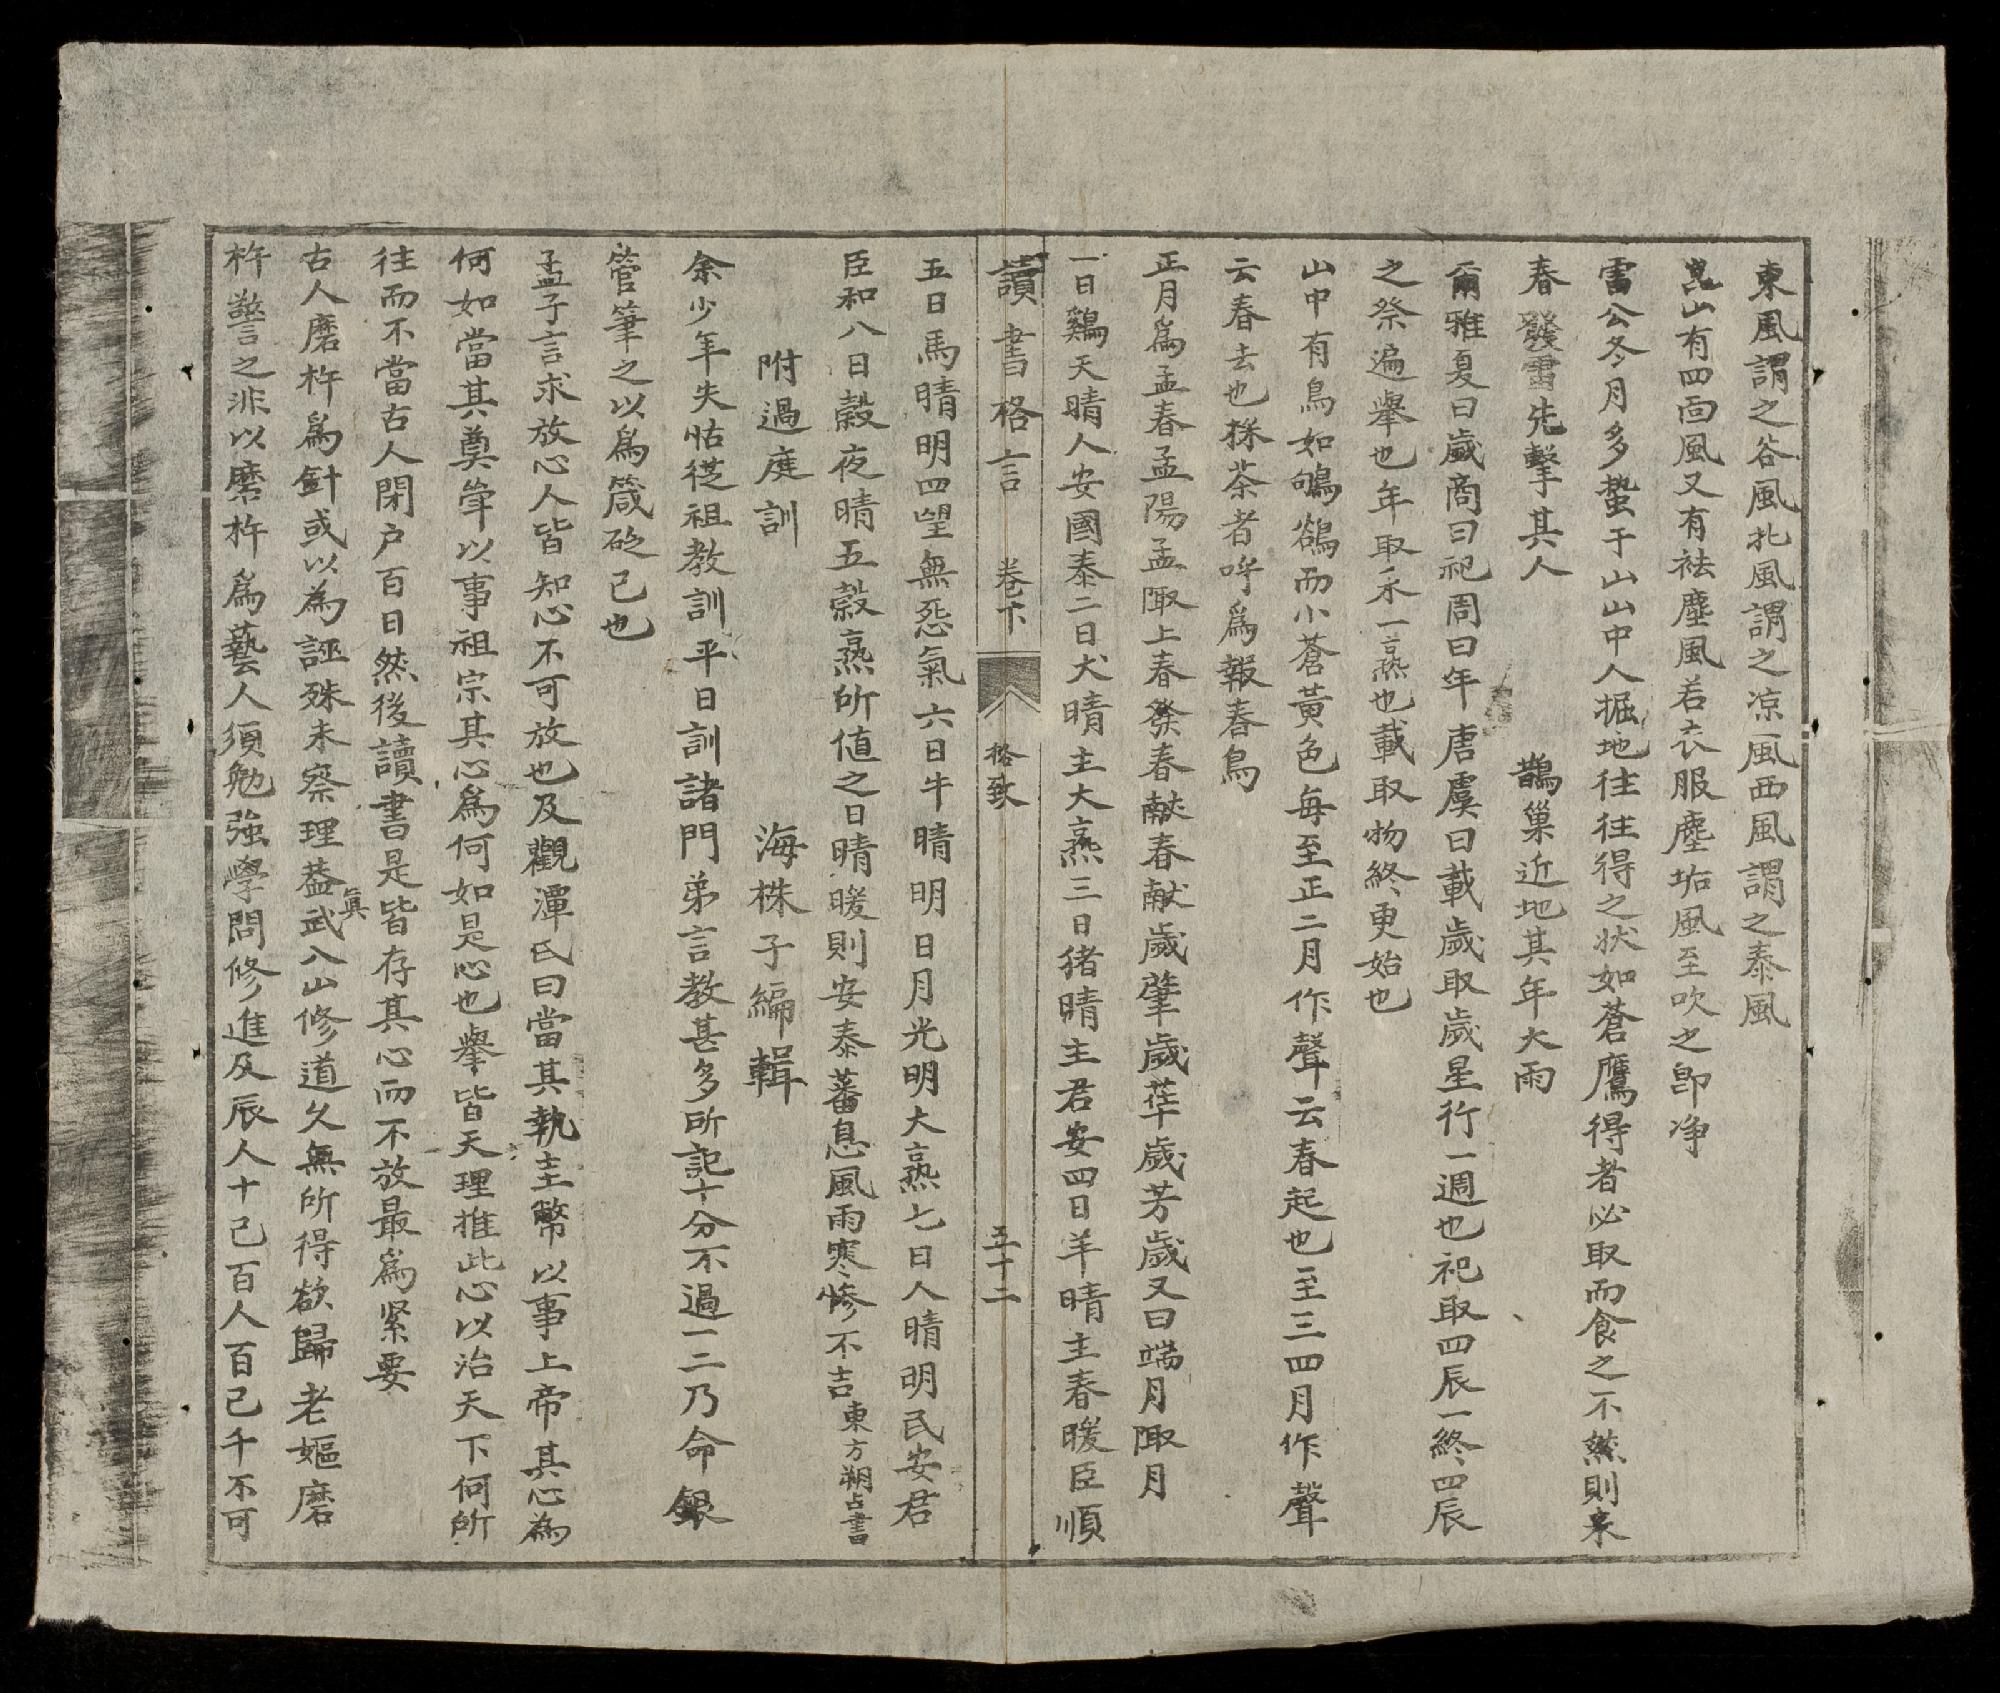 東風謂之谷風北風謂之凉風西風謂之泰風
崑山有四面風又有袪塵風若衣服塵垢風至吹之卽净
雷公冬月多蟄于山山中人掘地往往得之状如蒼鷹得者必取而食之不然則來
春發雷先擊其人　鵲巢近地其年大雨
爾雅夏曰歲商曰祀周曰年唐虞曰載歲取歲星行一週也祀取四辰一終四辰
之祭遍擧也年取禾一熹也載取物終更始也
山中有鳥如鴝鵒而小蒼黃色每至正二月作聲云春起也至三四月作聲
云春去也採茶者呼爲報春鳥
正月爲孟春孟陽孟陬上春發春献春献歲肇歲華歲芳歲又曰端月陬月
一日鷄天晴人安國泰二日犬晴主大熹三日猪晴主君安四日羊晴主春暖臣順
讀書格言　卷下　格致　五十二
五日馬晴明四望無怨氣六日牛晴明日月光明大熹七日人晴明民安君
臣和八日穀夜晴五穀熹所値之日晴暖則安泰蕃息風雨寒慘不吉東方朔占書
附過庭訓　海株子編輯
余少年失怙從祖教訓平日訓諸門弟言教甚多所記十分不過一二乃命銀
管筆之以爲箴砭已也
孟子言求放心人皆知心不可放也及觀潭氏曰當其執圭幣以事上帝其心為
何如當其奠斝以事祖宗其心爲何如是心也擧皆天理推此心以治天下何所
往而不當古人閉户百日然後讀書是皆存其心而不放最爲緊要
古人磨杵爲針或以為誣殊未察理葢真武入山修道久無所得欲歸老嫗磨
杵警之非以磨杵爲藝人須勉強學問修進及辰人十己百人百己千不可